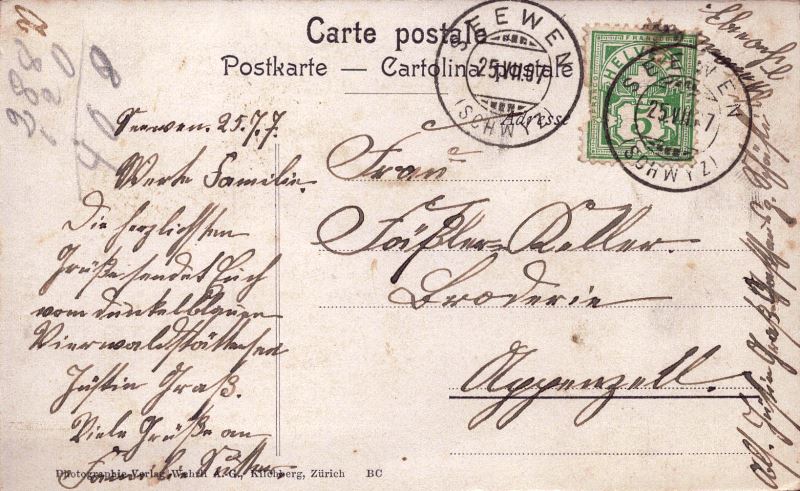 Carte postale
Postkarte — Cartolina postale
SEEWEN
25.VII.07
(SCHWYZ)
HELVETIA
FRANCO
5
SEEWEN
25.VII.07
(SCHWYZ)
Adresse
388
120
408
Seewen. 25.7.7.
Werte Familie.
Die herzlichsten
Grüße sendet Euch
vom dunkelblauen
Vierwaldstättersee
Justin Graß.
Viele Grüße an
Frau
Fäßler-Keller.
Broderie
Appenzell.
Abs. Justin Graß
Photographie-Verlag Wehrli A. G., Kilchberg, Zürich BC